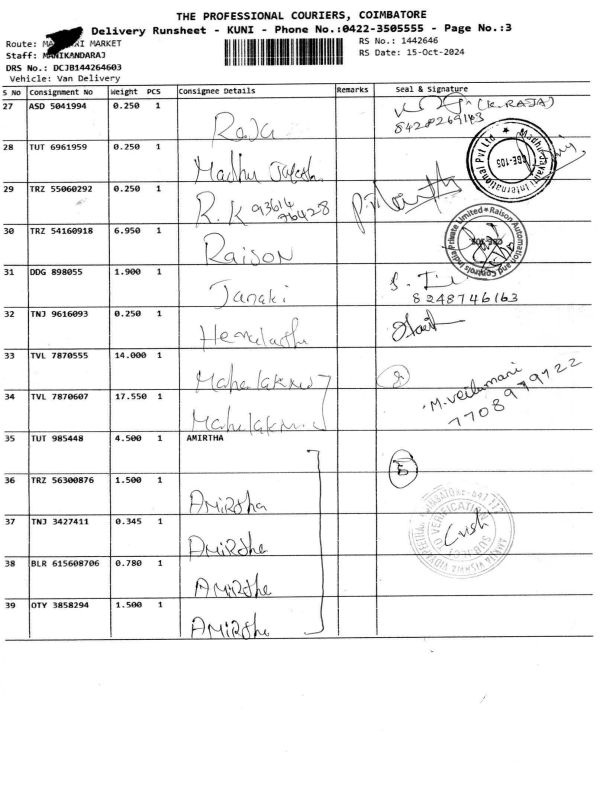 THE PROFESSIONAL COURIERS, COIMBATORE
Delivery Runsheet - KUNI - Phone No.:0422-3505555 - Page No.:3
Route: MARKET
RS No.: 1442646
Staff: MANIKANDARAJ
RS Date: 15-Oct-2024
DRS No.: DCJB144264603
Vehicle: Van Delivery
S No Consignment No Weight PCS Consignee Details Remarks Seal & Signature
27 ASD 5041994 0.250 1 Raja (K.RAJA)
8428269143
28 TUT 6961959 0.250 1 Madhu Madhu Jayanti International Pvt Ltd CBE-105
29 TRZ 55060292 0.250 1 R.K 93614
76428
30 TRZ 54160918 6.950 1 Raison Raison Automation and Controls India Private Limited
31 DDG 898055 1.900 1 Janaki
8248746163
32 TNJ 9616093 0.250 1 Hemalatha
33 TVL 7870555 14.000 1 Mahalakmi
34 TVL 7870607 17.550 1 Mahalakmi M.Veilumani
7708979722
35 TUT 985448 4.500 1 AMIRTHA
36 TRZ 56300876 1.500 1 AMiRtha
37 TNJ 3427411 0.345 1 AMiRthe VERIFICATION
38 BLR 615608706 0.780 1 AMiRthe
39 OTY 3858294 1.500 1 AMiRtha